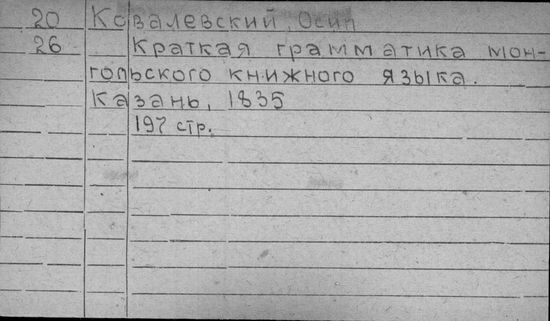 20 Ковалевский, Осип
26 Краткая грамматика мон-
гольского книжного языка.
Казань, 1835
197 стр.